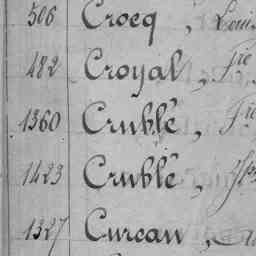 506 Crocq, Louis
482 Croyal, Fre
1360 Crublé, Fre
1423 Crublé,
1327 Cureau,